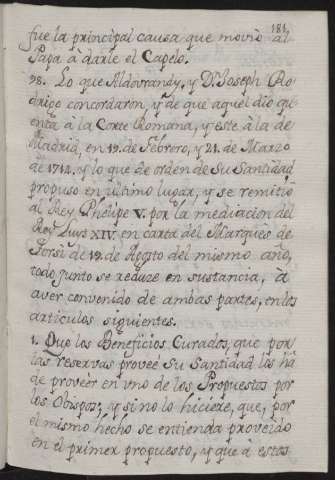 181.
fue la principal causa que movió al
Papa â darle el Capelo.
98. Lo que Aldovrandy, y Dn. Joseph Ro-
drigo concordaron, y de que aquel dió qu-
enta â la Corte Romana, y este â la de
Madrid, en 19. de Febrero, y 21. de Marzo
de 1714, y lo que de orden de Su Santidad
propuso en ultimo lugar, y se remitió
al Rey Phelipe V. por la mediacion del
Rey Luis XIV. en carta del Marques de
Torsi de 12. de Agosto del mismo año,
todo junto se reduze en sustancia, â
aver convenido de ambas partes, en los
articulos siguientes.
1. Que los Beneficios Curados, que por
las reservas proveé Su Santidad los há
de proveér en uno de los Propuestos por
los Obispos; y si no lo hiciere, que, por
el mismo hecho se entienda proveído
en el primer propuesto, y que â estos